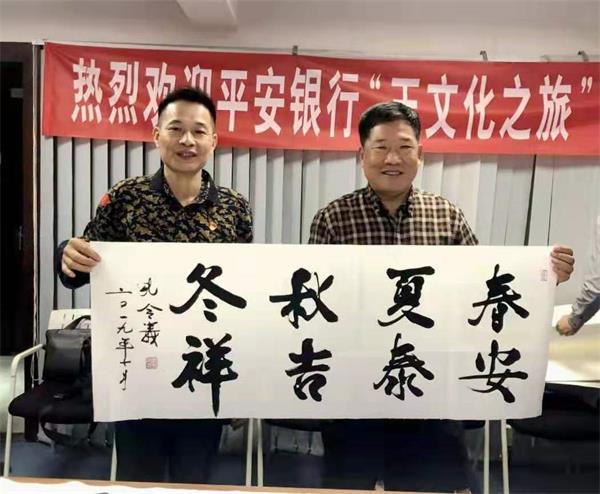 热烈欢迎平安银行“文化之旅”
春安
夏泰
秋吉
冬祥
令義
二〇一九年月